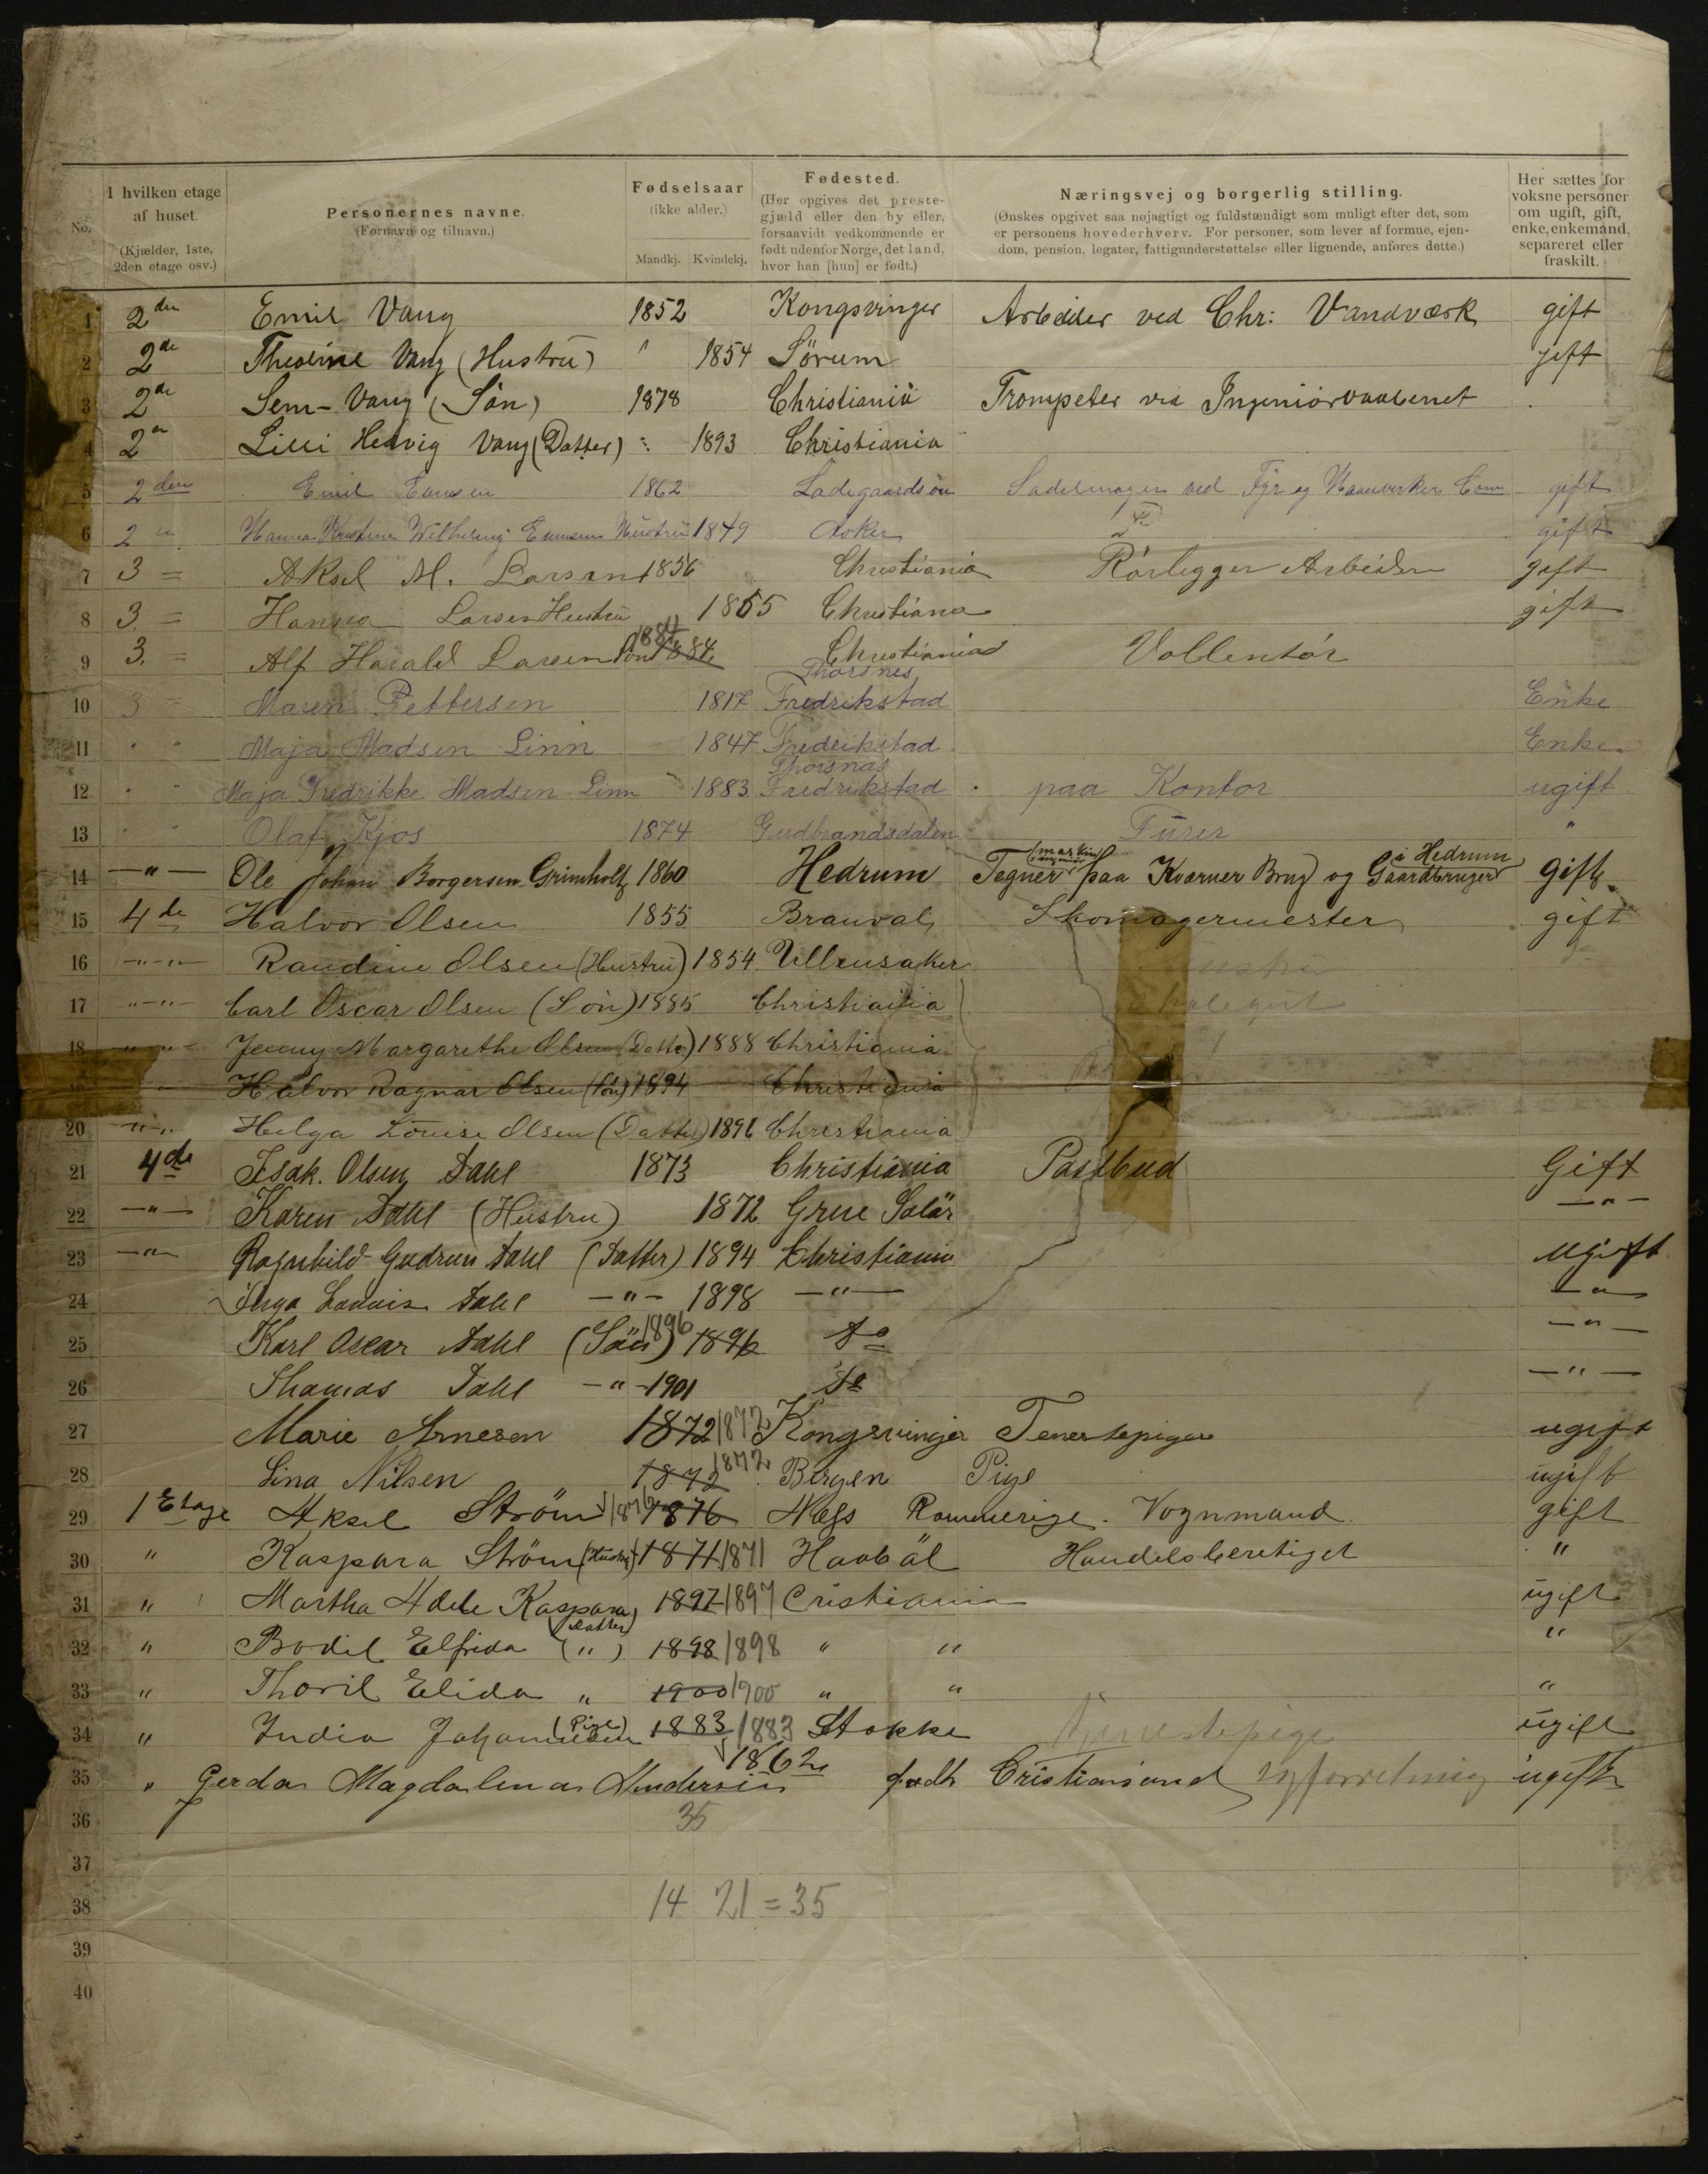 No.
I hvilken etage af huset.
(Kjælder, 1ste, 2den etage osv.)
Personernes navne.
(Fornavn og tilnavn.)
Fødselsaar
(ikke alder.)
Mandkj. Kvindekj.
Fødested.
(Her opgives det preste-
gjæld eller den by eller,
forsaavidt vedkommende er
født udenfor Norge, det land,
hvor han [hun] er født.)
Næringsvej og borgerlig stilling.
(Ønskes opgivet saa nøjagtigt og fuldstændigt som muligt efter det, som
er personens hovederhverv. For personer, som lever af formue, ejen-
dom, pension, legater, fattigunderstøttelse eller lignende, anføres dette.)
Her sættes for
voksne personer
om ugift, gift,
enke, enkemand,
separeret eller
fraskilt.
1 2den Emil Vang 1852 Kongsvinger Arbeider ved Chr: Vandværk gift
2 2de Theoline Vang (Hustru) " 1854 Sörum gift
3 2de Sem- Vang (Sön) 1878 Christiania Trompeter ved Ingeniörvaabenet
4 2en Lilli Hedvig Vang (Datter) " 1893 Christiania
5 2den Emil 1862 Ladegaardsöen Sadelmager ved gift
6 2en Hanna Wilhelmi Hustru 1849 Asker gift
7 3 = Aksel M. Larsen 1856 Christiania Rörlegger Arbeider gift
8 3 = Hanna Larsen Hustru 1855 Christiana gift
1884
9 3. = Alf Harald Larsen Sön 1884 Christiania Vollentör
Thorsnes
10 3 = Maren Pettersen 1817 Fredrikstad Enke
11 " " Maja Madsen Linn 1847 Fredrikstad Enke
Thorsnas
12 " " Maja Fredrikke Madsen Linn 1883 Fredrikstad paa Kontor ugift
13 " " Olaf Kjos 1874 Gudbrandsdalen Furer "
(maskin ingeniør) i Hedrum
14 —"— Ole Johan Borgersen Grimholt 1860 Hedrum Tegner paa Kværner Brug og Gaardbruger gift
15 4de Halvor Olsen 1855 Branval Skomagermester gift
16 —"— Randine Olsen (Hustru) 1854 Ullensaker
17 "—"— Carl Oscar Olsen (Sön) 1885 Christiania
18 "—"— Jenny Margarethe Olsen (Datter) 1888 Christiania
Halvor Ragnar Olsen (Sön) 1894 Christiania
20 "—"— Helga Louise Olsen (Datter) 1896 Christiania
21 4de Isak. Olsen Dahl 1873 Christiania Postbud Gift
22 —"— Karen Dahl (Hustru) 1872 Grue Solör —"—
23 —"— Ragnhild Gudrun Dahl (Datter) 1894 Christiania Ugift
24 Inga Lovise Dahl —"— 1898 —"— —"—
1896
25 Karl Oscar Dahl (Sön) 1896 Do —"—
26 Thomas Dahl —"— 1901 Do —"—
27 Marie Arnesen 1872 1872 Kongsvinger Tenestepige ugift
1872
28 Lina Nilsen 1872 Bergen Pige ugift
29 1 Etage Aksel Ström 1876 1876 Næs Rommerige. Vognmand gift
30 " Kaspara Ström (Hustru) 1871 1871 Haaböl Handelsberetiget "
31 " Martha Adele Kaspara 1897 1897 Cristiania ugift
(Datter)
32 " Bodil Elfrida (") 1898 1898 " " "
33 " Thoril Elida " 1900 1900 " " "
(Pige)
34 " India Johannesen 1883 1883 Stokke Tjenestepige ugift
1862
35 " Gerda Magdalena Andersen födt Cristiansund Syforretning ugift
36 35
37
38 14 21 = 35
39
40